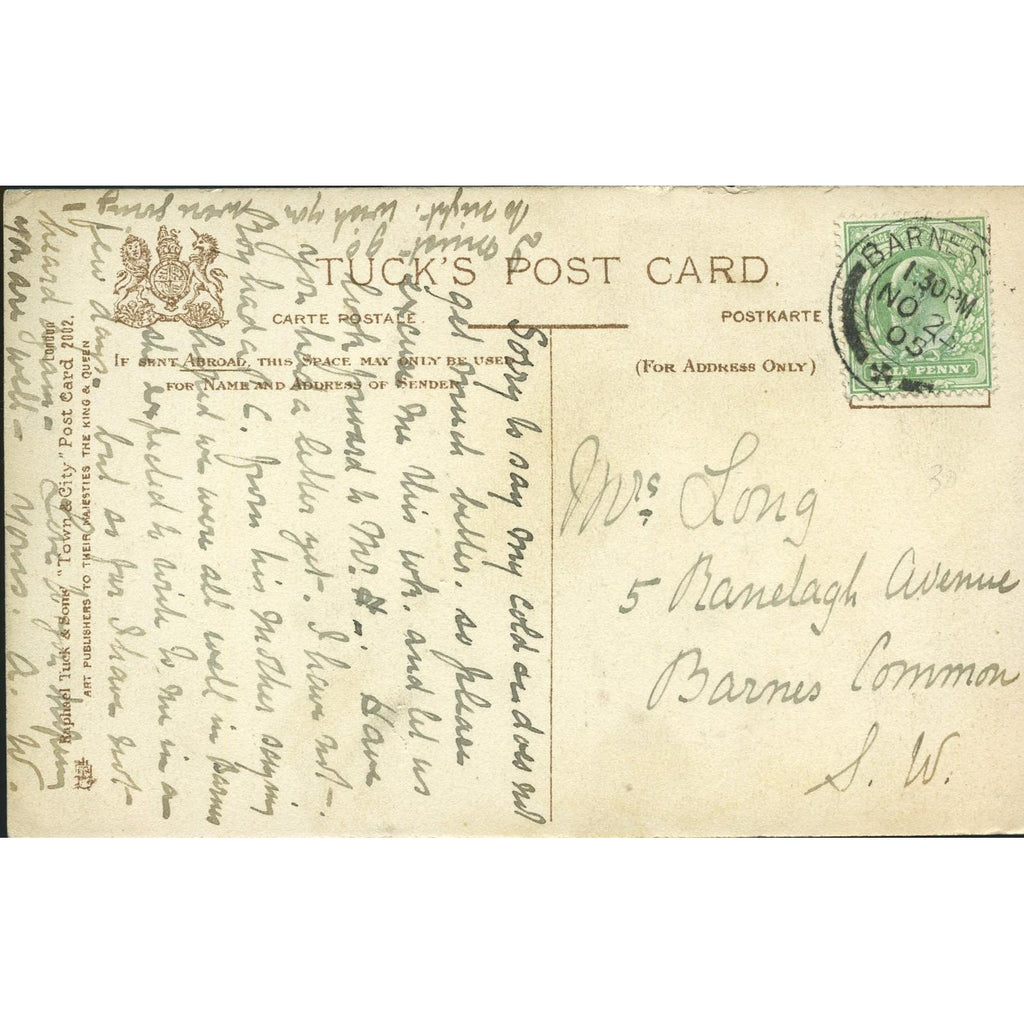 TUCK'S POST CARD.
CARTE POSTALE.
POSTKARTE
IF SENT ABROAD, THIS SPACE MAY ONLY BE USED
FOR NAME AND ADDRESS OF SENDER
(FOR ADDRESS ONLY)
BARNES
1.30PM
NO 2
05
HALF PENNY
Mrs. Long
5 Ranelagh Avenue
Barnes Common
S. W.
Sorry to say my cold does not
get much better. so please
excuse me this wk. and let us
look forward to Mr. H-. Have
you had a letter yet. I have not-.
Roy had a C. from his Mother saying
she and were all well in Barnes
she expected to write to me in a
few days- but as far I have not-
heard again-
you are well- Yours. A. W.
I must go
to night. wish you were going-
Raphael Tuck & Sons' "Town & City" Post Card 2002.
London
ART PUBLISHERS TO THEIR MAJESTIES THE KING & QUEEN